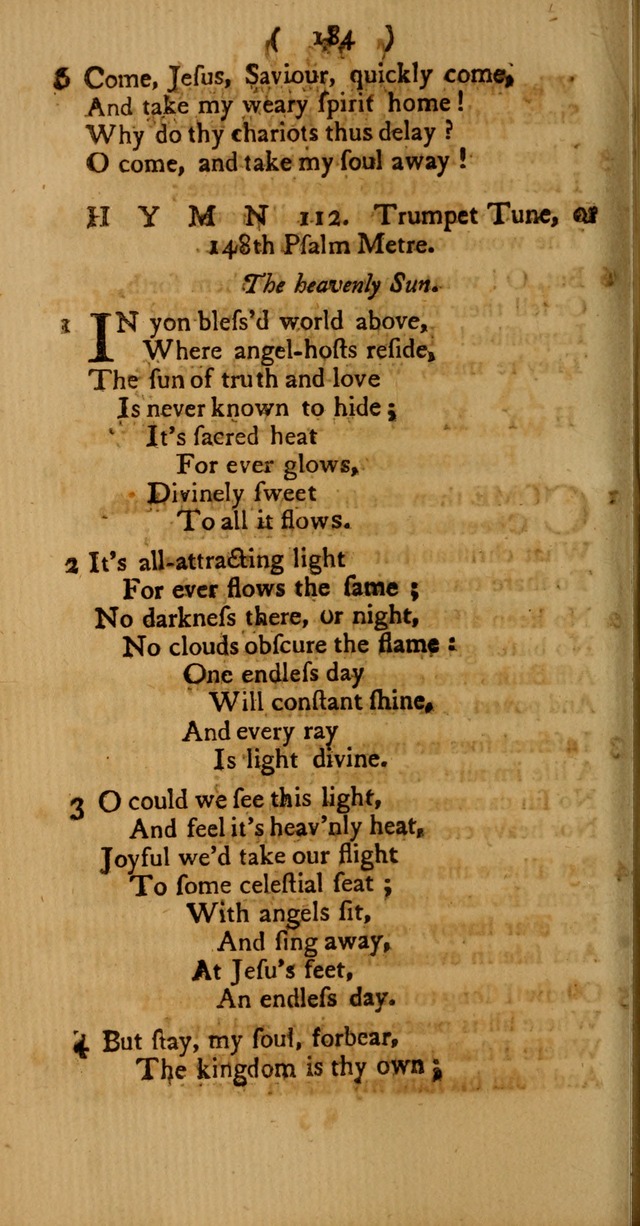 ( 184 )
6 Come, Jeſus, Saviour, quickly come,
And take my weary ſpirit home!
Why do thy chariots thus delay?
O come, and take my ſoul away!
HYMN 112. Trumpet Tune, or
148th Pſalm Metre.
The heavenly Sun.
1 IN yon bleſs'd world above,
Where angel-hoſts reſide,
The ſun of truth and love
Is never known to hide;
It's ſacred heat
For ever glows,
Divinely ſweet
To all it flows.
2 It's all-attracting light
For ever flows the ſame;
No darkneſs there, or night,
No clouds obſcure the flame:
One endleſs day
Will conſtant ſhine,
And every ray
Is light divine.
3 O could we ſee this light,
And feel it's heav'nly heat,
Joyful we'd take our flight
To ſome celeſtial ſeat;
With angels ſit,
And ſing away,
At Jeſu's feet,
An endleſs day.
4 But ſtay, my ſoul, forbear,
The kingdom is thy own;